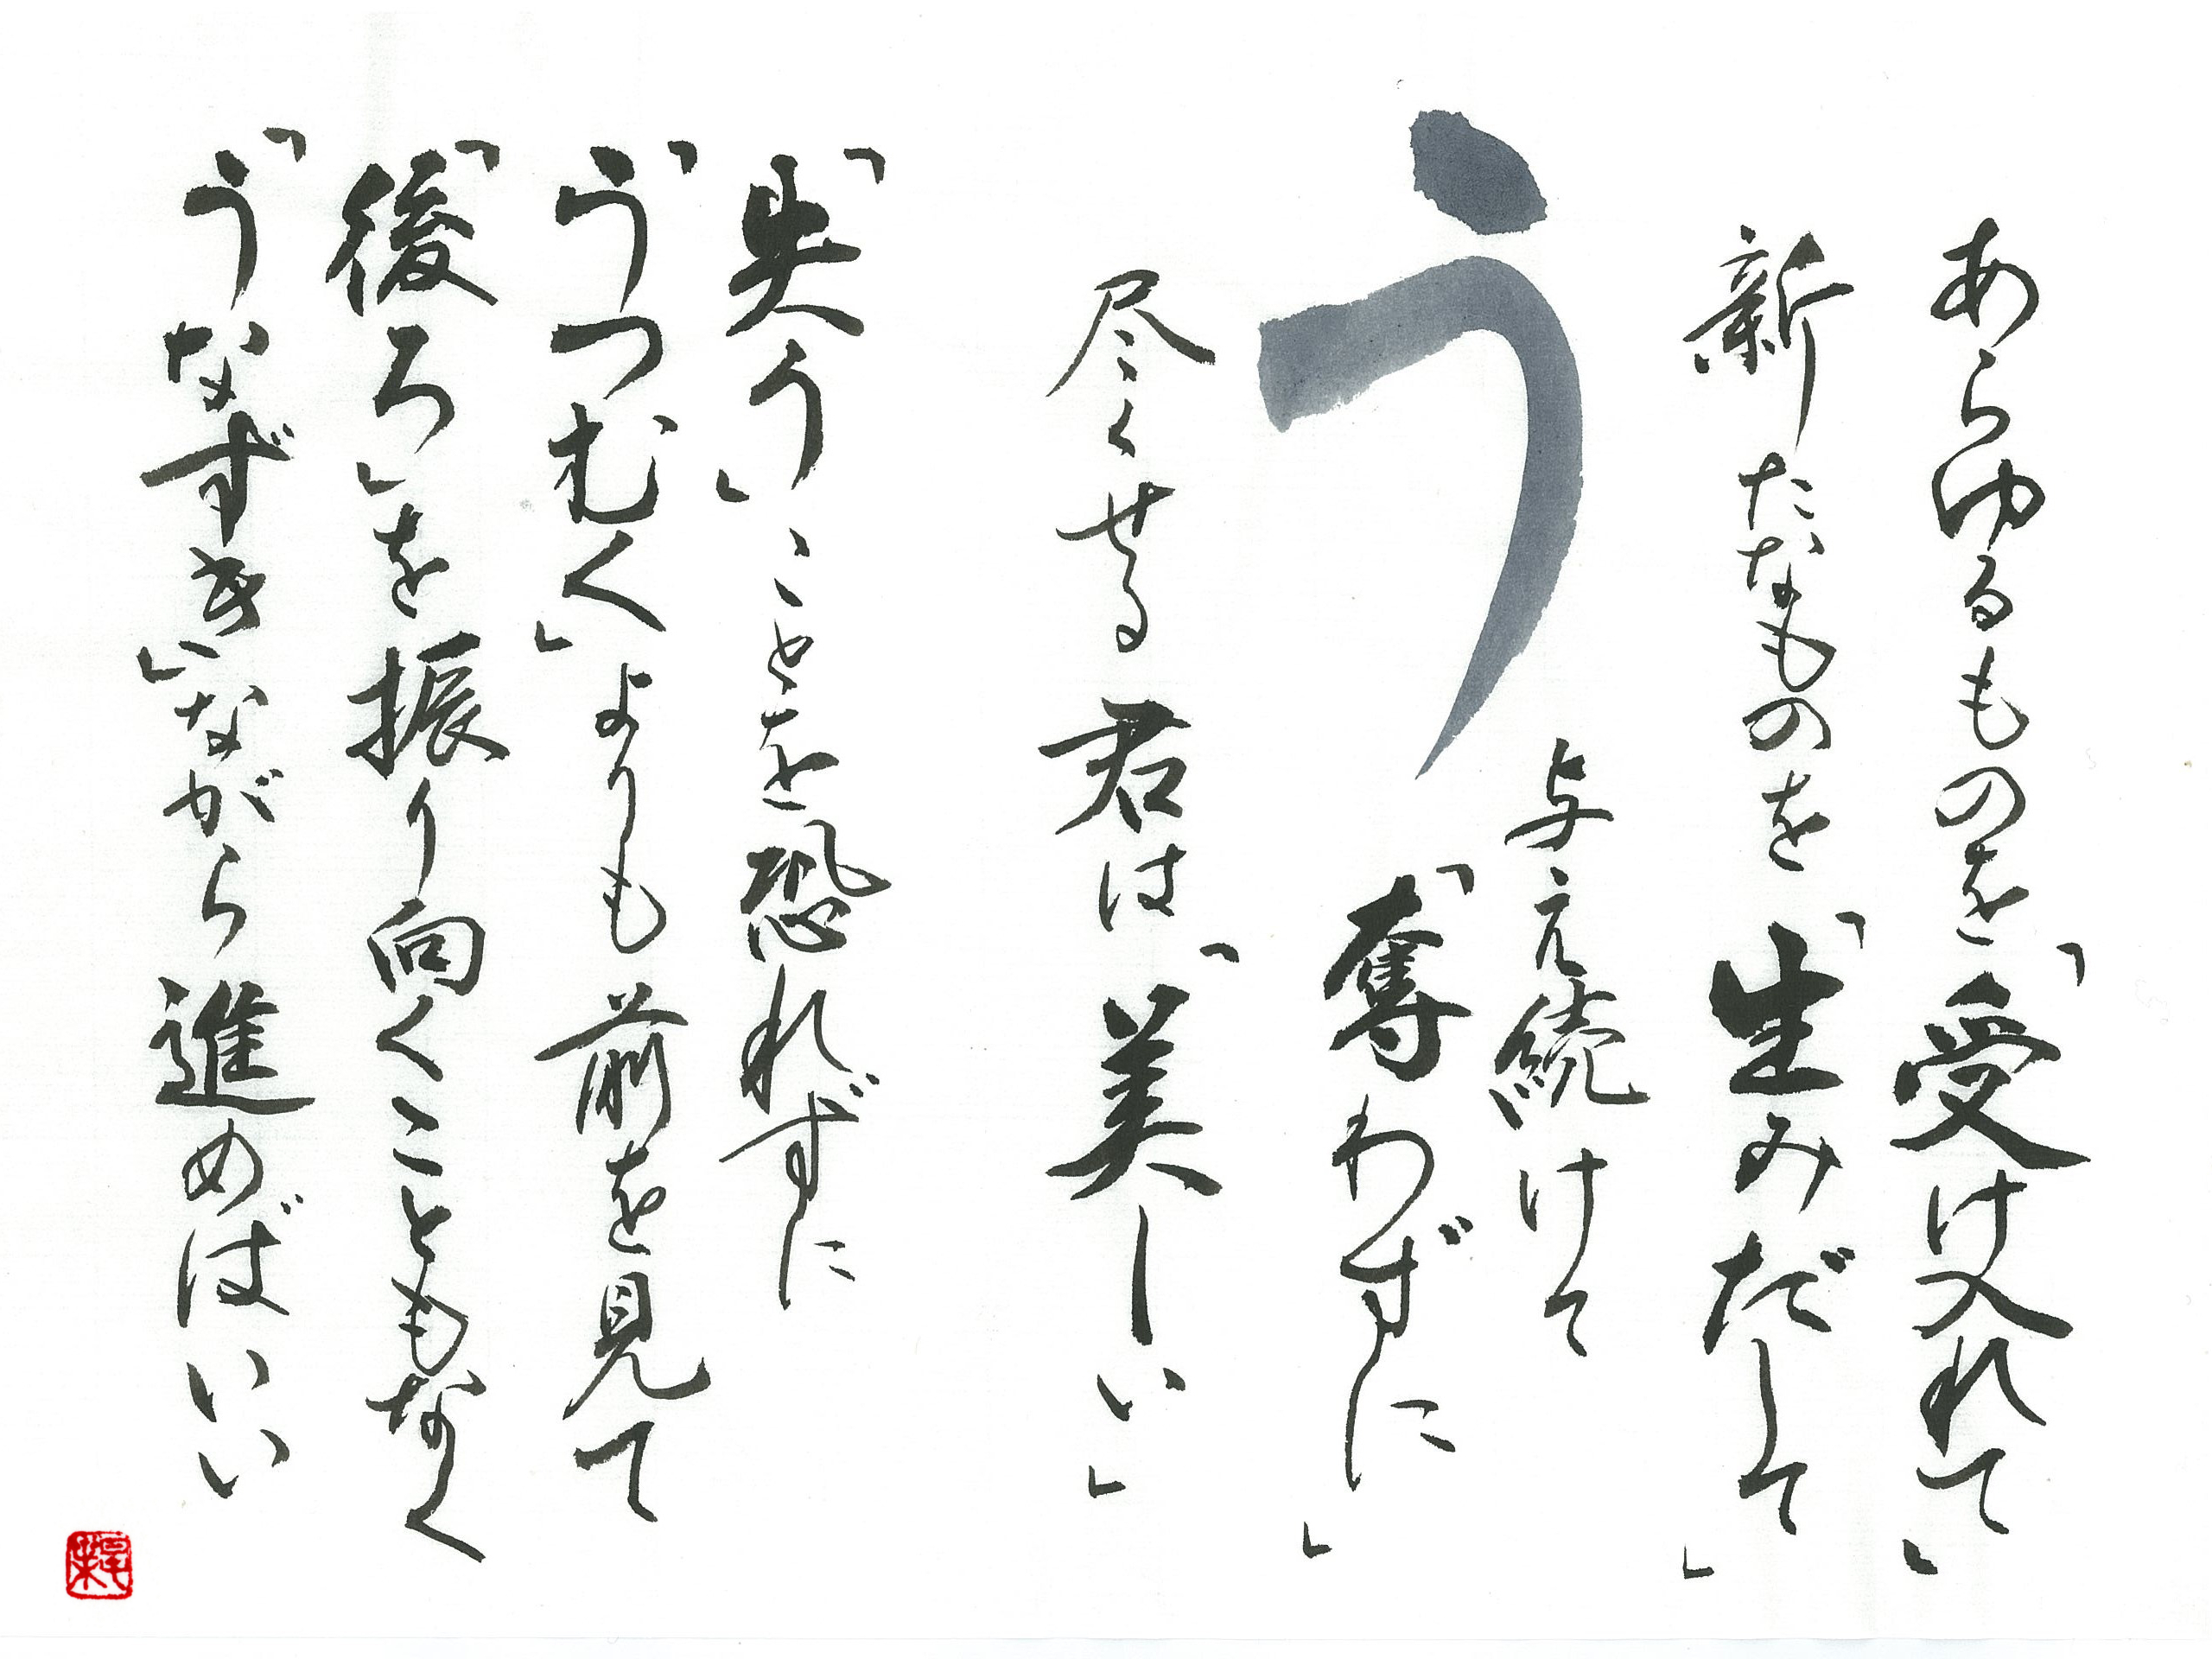 あらゆるものを「受け入れて」
新たなものを「生みだして」
う
与え続けて
「奪わずに」
尽くせる君は「美しい」
「失う」ことを恐れずに
「うつむく」よりも前を見て
「後ろ」を振り向くこともなく
「うなずき」ながら進めばいい